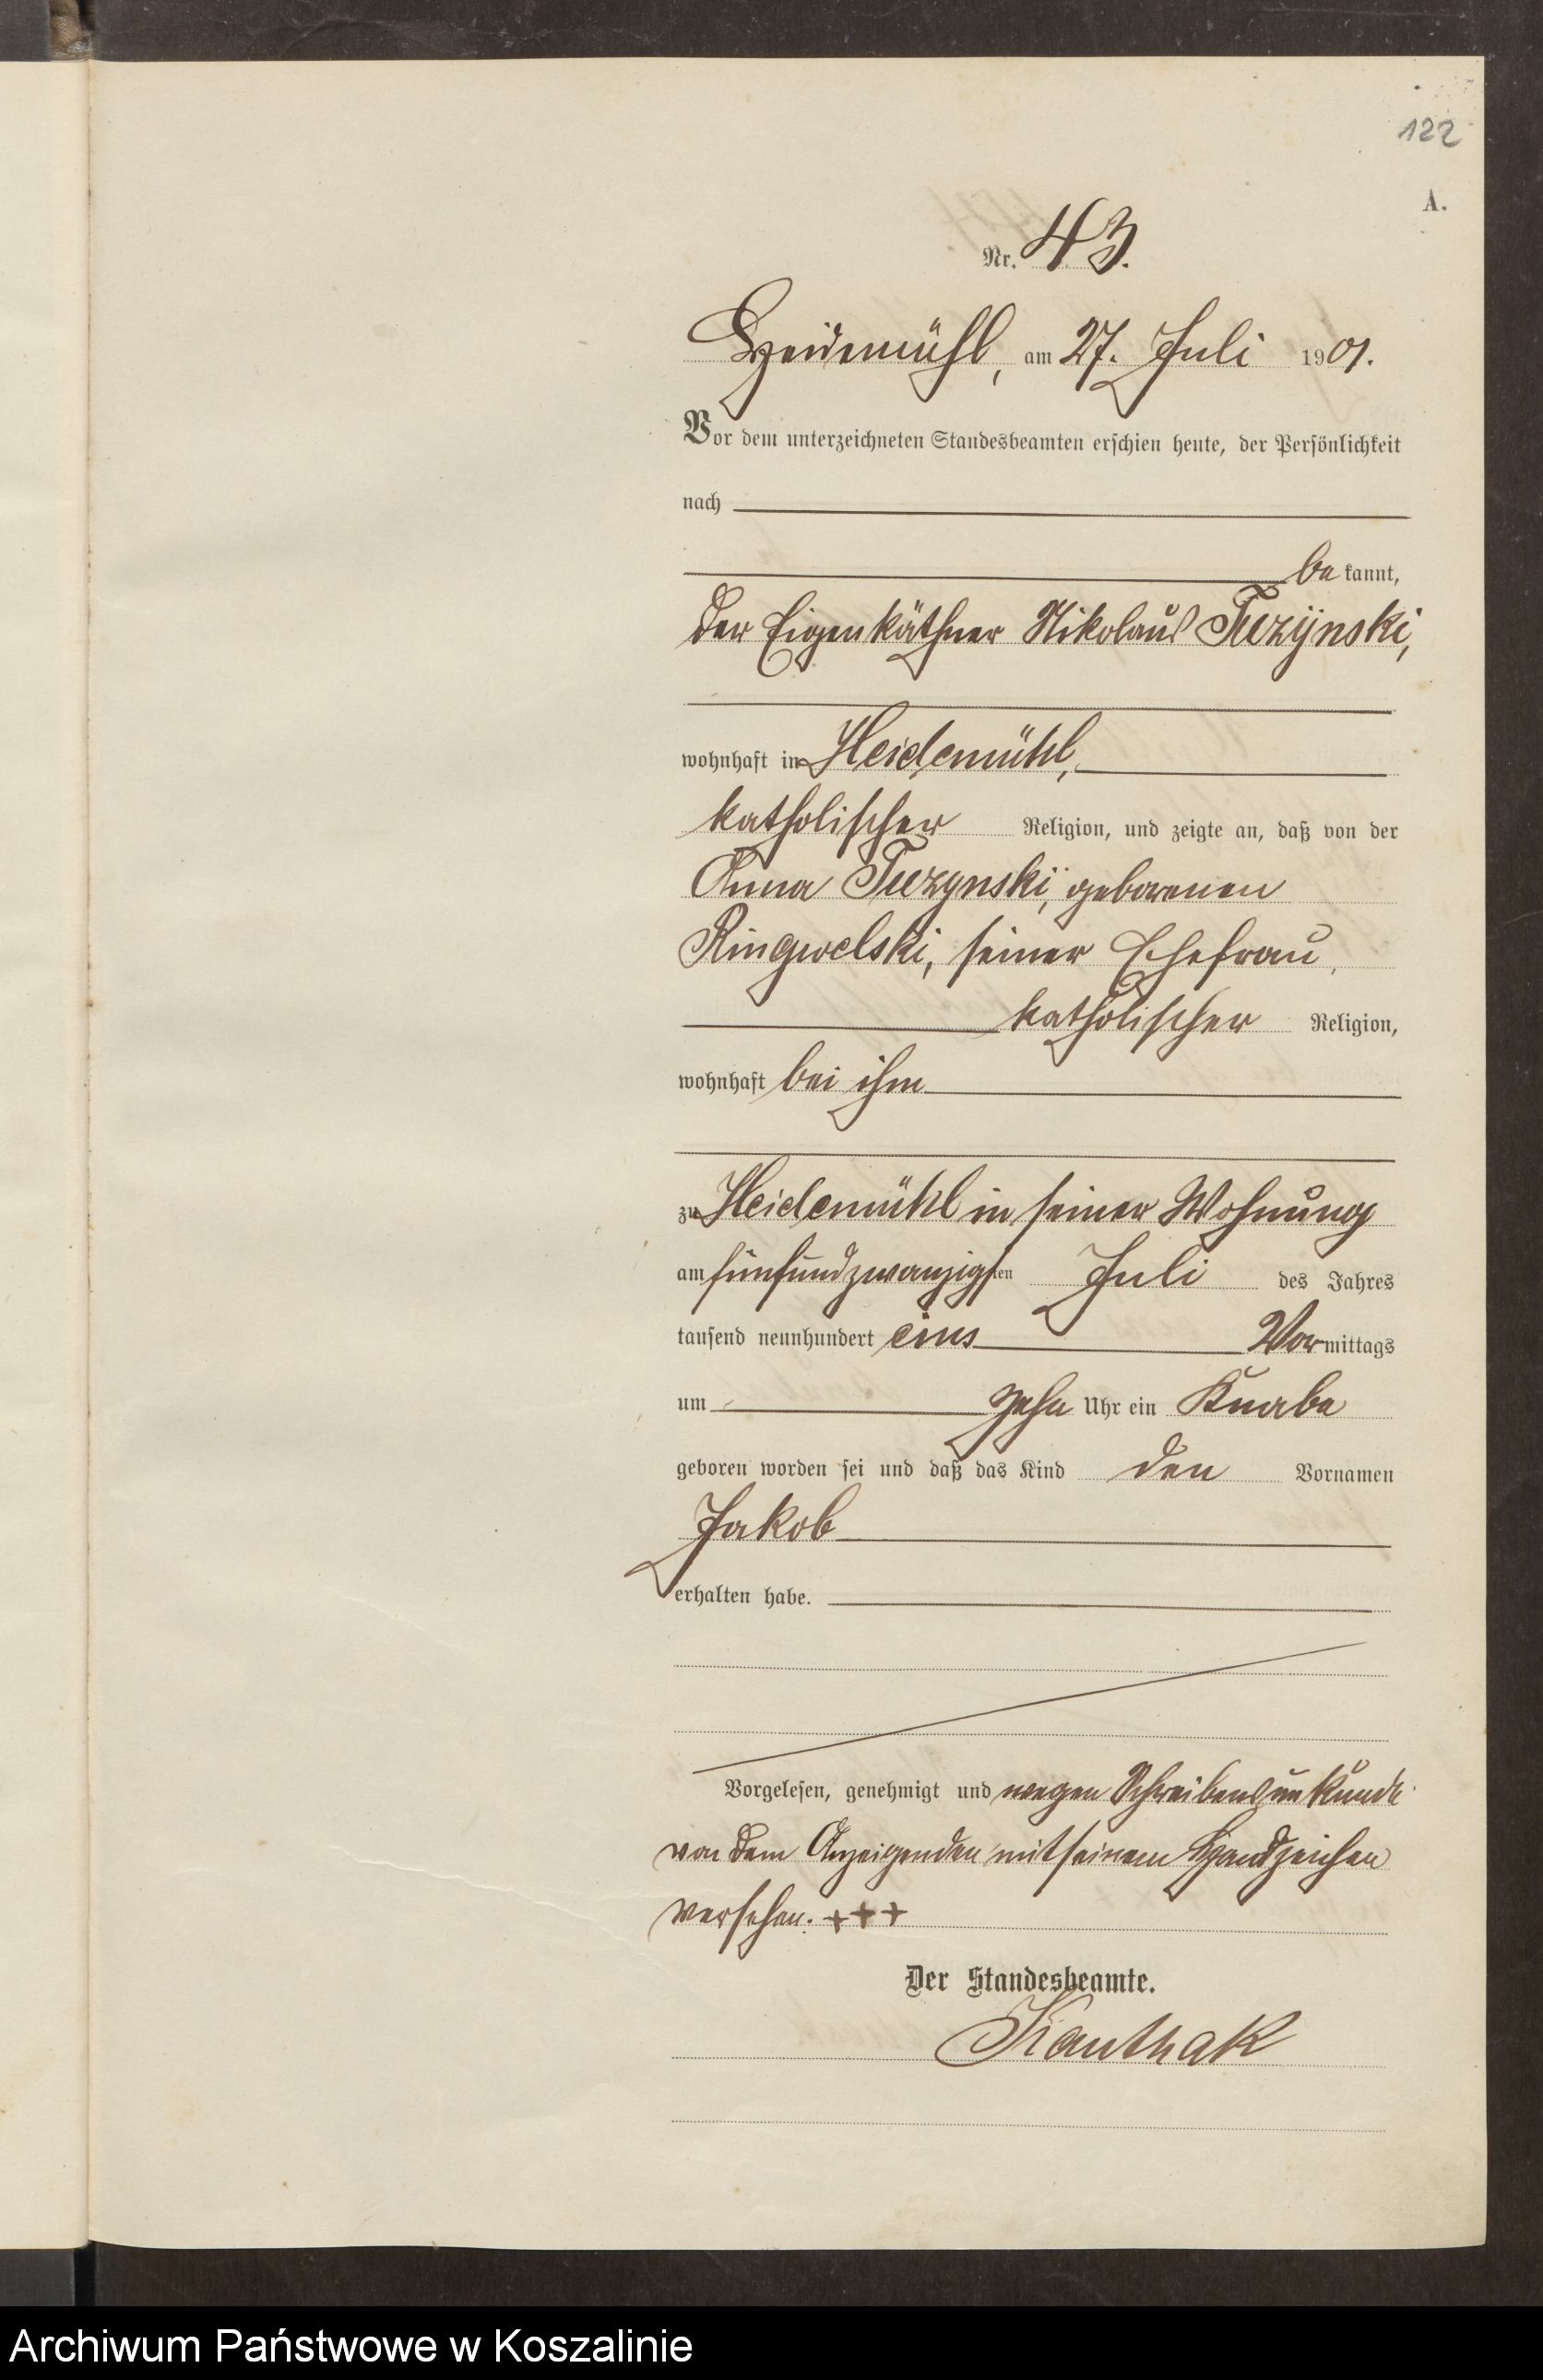 122
A.
Nr. 43.
Heidemühl, am 27. Juli 1901.
Vor dem unterzeichneten Standesbeamten erschien heute, der Persönlichkeit
nach
be kannt,
der Eigenkäthner Nikolaus
wohnhaft in Heidemühl,
katholischer Religion, und zeigte an, daß von der
Anna geborenen
Ringwelski, seiner Ehefrau,
katholischer Religion,
wohnhaft bei ihm
zu Heidemühl in seiner Wohnung
am fünfundzwanzigsten Juli des Jahres
tausend neunhundert eins Vormittags
um zehn Uhr ein Knabe
geboren worden sei und daß das Kind den Vornamen
Jakob
erhalten habe.
Vorgelesen, genehmigt und wegen Schreibensunkunde
von dem Anzeigenden mit seinem Handzeichen
versehen. +++
Der Standesbeamte.
Kanthak
Archiwum Państwowe w Koszalinie